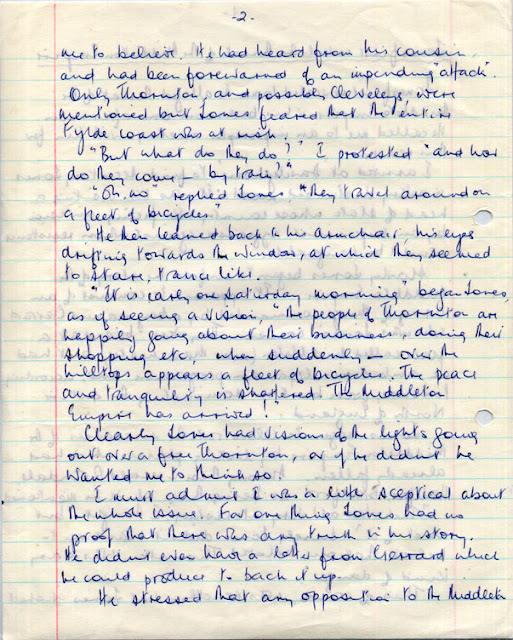 -2-
me to believe. He had heard from his cousin
and had been forewarned of an impending "attack".
Only Thornton, and possibly Cleveleys, were
mentioned but Jones feared that the entire
Fylde coast was at risk.
"But what do they do?" I protested "and how
do they come - by train?"
"Oh no" replied Jones, "they travel around on
a fleet of bicycles."
He then leaned back in his armchair, his eyes
drifting towards the window, at which they seemed
to stare, trance like.
"It is early one Saturday morning" began Jones,
as if seeing a vision, "the people of Thornton are
happily going about their business, doing their
shopping etc, when suddenly - over the
hilltops appears a fleet of bicycles. The peace
and tranquility is shattered. The Middleton
Empire has arrived!"
Clearly Jones had visions of the lights going
out over a free Thornton, or if he didn't he
wanted me to think so.
I must admit I was a little sceptical about
the whole issue. For one thing Jones had no
proof that there was any truth in his story.
He didn't even have a letter from Gerrard which
he could produce to back it up.
He stressed that any opposition to the Middleton